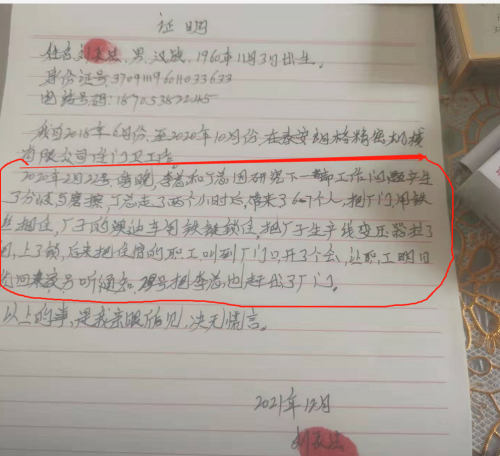 证明
姓名刘 男,汉族,1960年11月3日出生。
身份证号:370911196011033633
电话号码:
我自2018年6月份,至2020年10月份,在泰安 格精密机械
有限公司任门卫工作。
2020年2月22号,当晚,李总和丁总因研究下一 工作问题产生
了分歧与磨擦,丁总走了两个小时后,带来了6.7个人,把厂门用铁
丝拥住,厂子的 油车用铁链锁住,把厂子生产线变压器拉了
闸,上了锁,后来把住宿的职工叫到厂门口,开了个会,让职工明日
回来 听通知, 把李总也赶出了厂门。
以上的事,是我亲眼所见,决无慌言。
2021年12月
刘